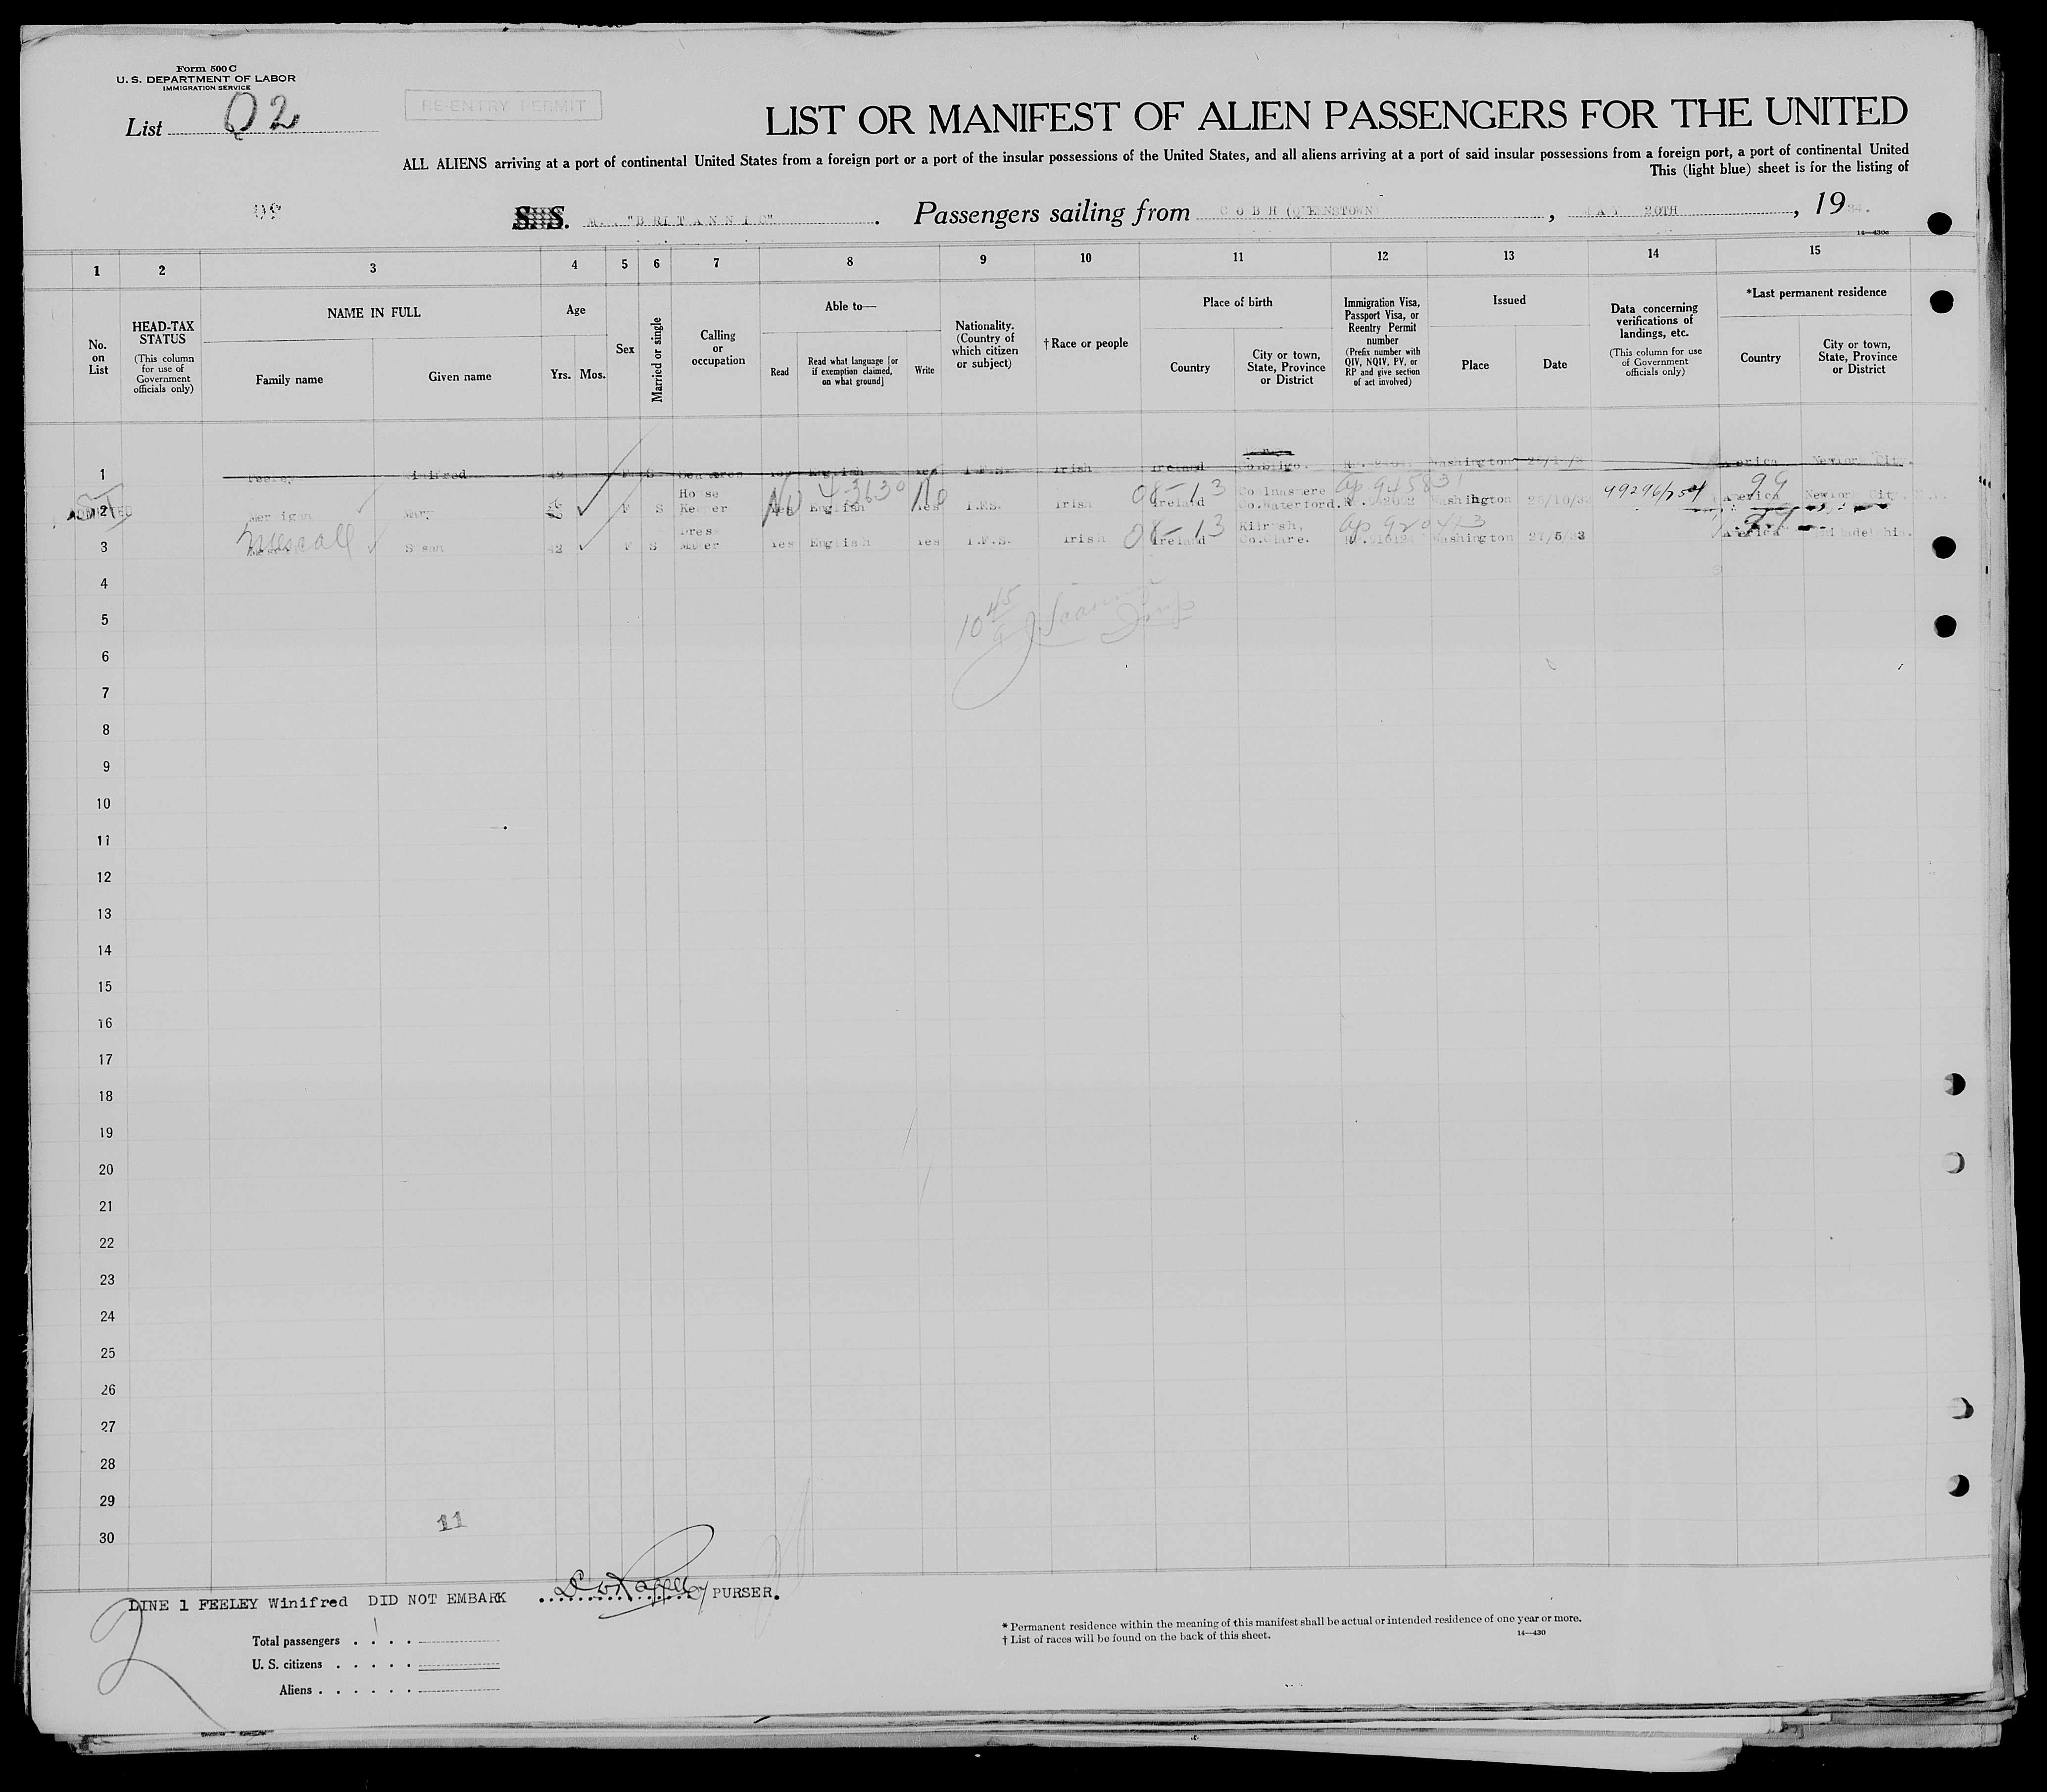 Form 500 C
U. S. DEPARTMENT OF LABOR
IMMIGRATION SERVICE
List 02
RE-ENTRY PERMIT
LIST OR MANIFEST OF ALIEN PASSENGERS FOR THE UNITED
ALL ALIENS arriving at a port of continental United States from a foreign port or a port of the insular possessions of the United States, and all aliens arriving at a port of said insular possessions from a foreign port, a port of continental United
This (light blue) sheet is for the listing of
S. S. "BRITANNIC". Passengers sailing from COBH (QUEENSTOWN), MAY 20TH, 1934.
14—430c
1 2 3 4 5 6 7 8 9 10 11 12 13 14 15
No. on List
HEAD-TAX STATUS
(This column for use of Government officials only)
NAME IN FULL
Family name
Given name
Age
Yrs. Mos.
Sex
Married or single
Calling or occupation
Able to—
Read
Read what language [or if exemption claimed, on what ground]
Write
Nationality. (Country of which citizen or subject)
† Race or people
Place of birth
Country
City or town, State, Province or District
Immigration Visa, Passport Visa, or Reentry Permit number
(Prefix number with QIV, NQIV, PV, or RP and give section of act involved)
Issued
Place
Date
Data concerning verifications of landings, etc.
(This column for use of Government officials only)
*Last permanent residence
Country
City or town, State, Province or District
1 Feeley Winifred F S English Yes I.F.S. Irish Ireland Co.Sligo. Washington America
ADMITTED 2 Mary F S House Keeper No 4-3630 Yes English No Yes I.F.S. Irish 08-13 Ireland Co.Waterford. ap 945831 Washington 49296/754 99 America
3 Susan 42 F S Dress Maker Yes English Yes I.F.S. Irish 08-13 Ireland Kilrush, Co.Clare. ap 920413 Washington 27/5/33 America Philadelphia.
4
5
6
7
8
9
10
11
12
13
14
15
16
17
18
19
20
21
22
23
24
25
26
27
28
29
30
11
LINE 1 FEELEY Winifred DID NOT EMBARK PURSER.
2
Total passengers
U. S. citizens
Aliens
* Permanent residence within the meaning of this manifest shall be actual or intended residence of one year or more.
† List of races will be found on the back of this sheet.
14—430